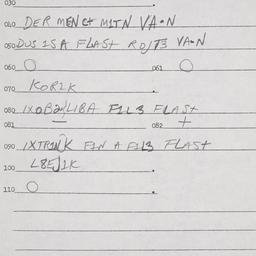 030
040 DER MENGT MITN VA•N
050 DUS ISA FLAST RO/T3 VA•N
060 O 061 O
070 KORIK
080 IXOB24/LIBA FIL3 FLAST
081 082 +
090 IXTRINK FIN A FIL3 FLAST
100 L8EJIK
110 O